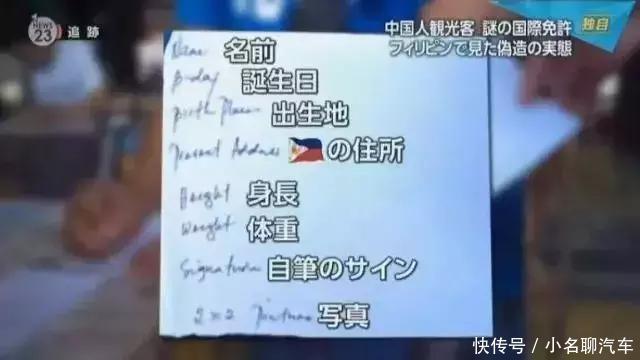 NEWS 23 追跡
中国人観光客 謎の国際免許 独自
フィリピンで見た偽造の実態
Name 名前
B-day 誕生日
Birth Place 出生地
Present Address の住所
Height 身長
Weight 体重
Signature 自筆のサイン
2x2 Picture 写真
快传号/小名聊汽车